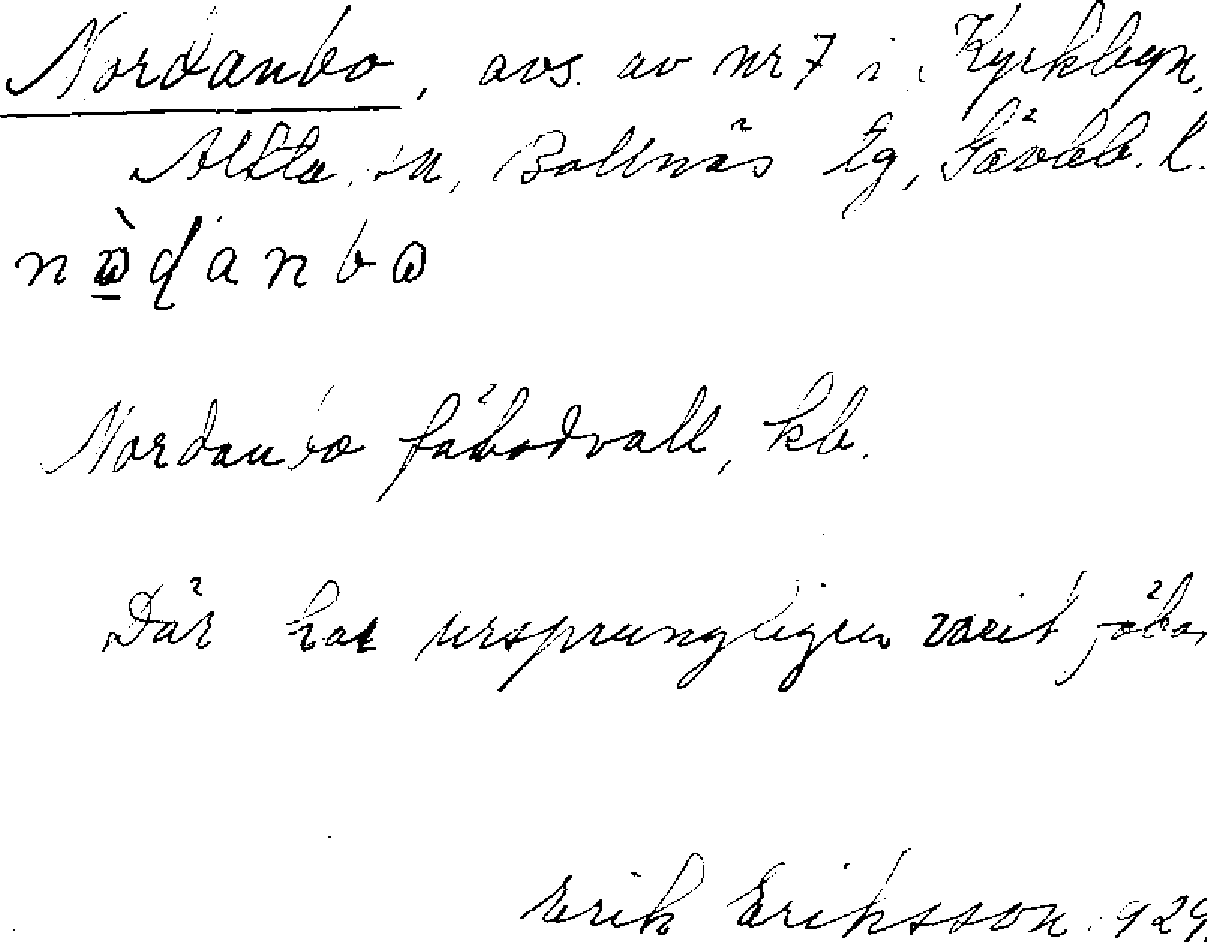 Nordanbo, avs. av nr 7 i Kyrkbyn,
Alfta sn, Bollnäs tg, Gävleb. l.
Nordanbo fäbodvall, kb.
Där har ursprungligen varit fäbo
Erik Eriksson 1929.